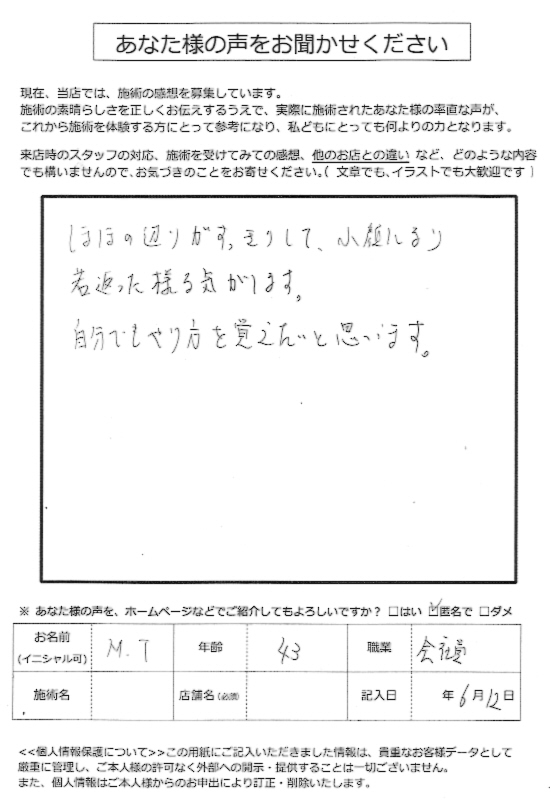 あなた様の声をお聞かせください
現在、当店では、施術の感想を募集しています。
施術の素晴らしさを正しくお伝えするうえで、実際に施術されたあなた様の率直な声が、
これから施術を体験する方にとって参考になり、私どもにとっても何よりの力となります。
来店時のスタッフの対応、施術を受けてみての感想、他のお店との違い など、どのような内容
でも構いませんので、お気づきのことをお寄せください。( 文章でも、イラストでも大歓迎です )
ほほの辺りがすっきりして、小顔になり
若返った様な気がします。
自分でもやり方を覚えたいと思います。
※ あなた様の声を、ホームページなどでご紹介してもよろしいですか? □はい ☑匿名で □ダメ
お名前 (イニシャル可) M.T 年齢 43 職業 会社員
施術名 店舗名(必須) 記入日 年 6月 12日
<<個人情報保護について>>この用紙にご記入いただきました情報は、貴重なお客様データとして
厳重に管理し、ご本人様の許可なく外部への開示・提供することは一切ございません。
また、個人情報はご本人様からのお申出により訂正・削除いたします。